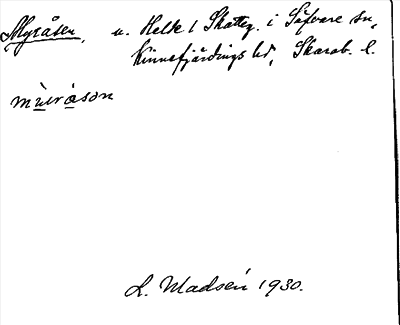 Myråsen, u. Helde 1 Skatteg. i Säfvare sn,
Kinnefjärdings hd, Skarab. l.
mùiråsən
L. Madsén 1930.